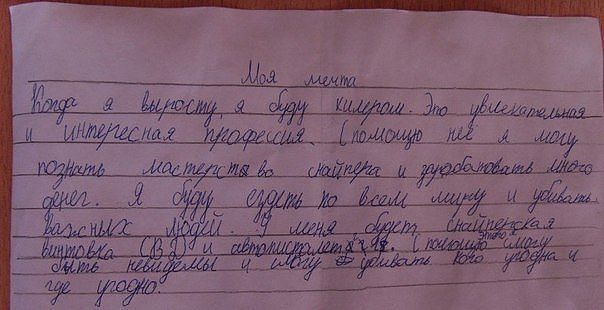 Моя мечта
Когда я вырасту, я буду килером. Это увлекательная
и интересная профессия. С помощю неё я могу
познать мастерство снайпера и зарабатовать много
денег. Я буду ездеть по всем миру и убивать
важных людей. У меня будет снайперская
винтовка (ВЗ) и автопистолет. С помощю этого я смогу
быть невидемы и смогу убивать кого угодно и
где угодно.